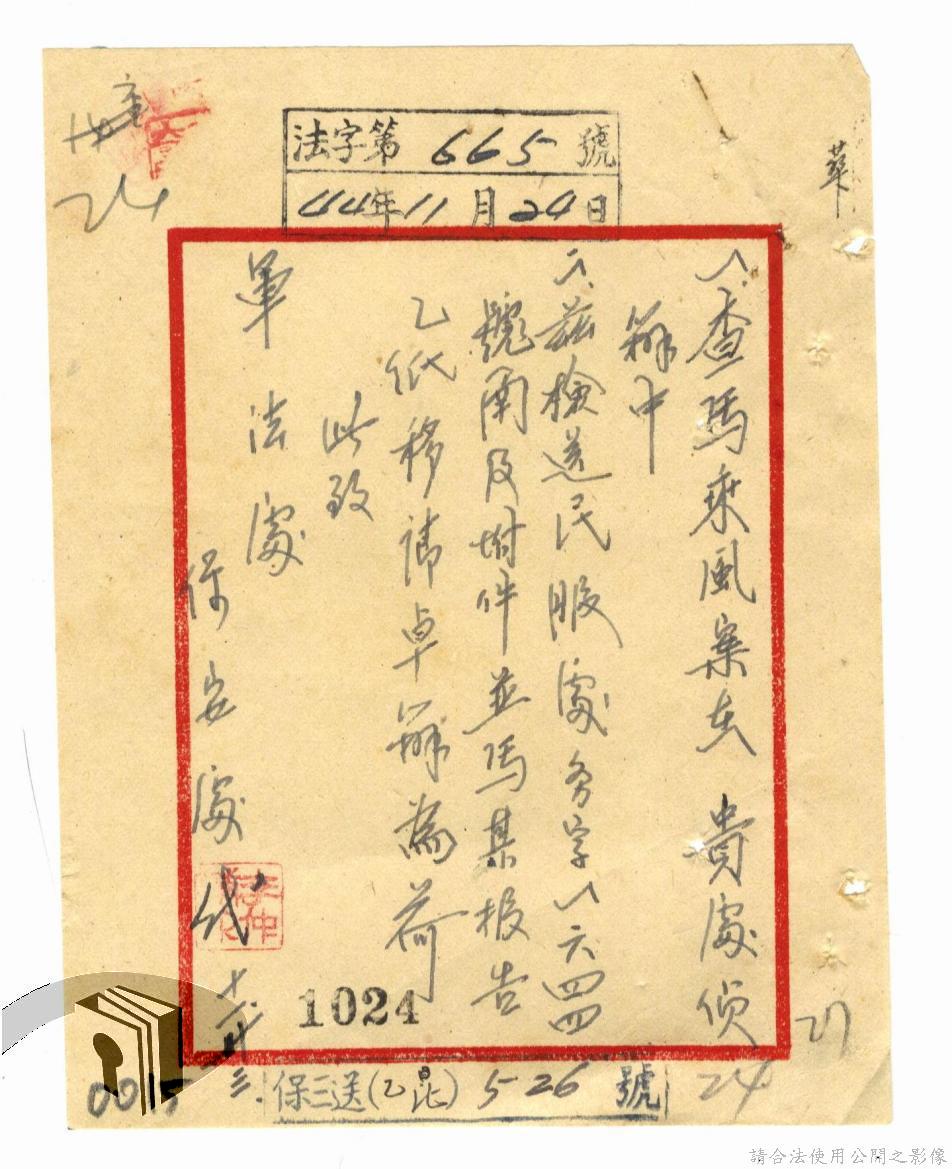 法字第 665 號
44年11月24日
24
一、查馬乘風案在 貴處偵
辦中
二、茲檢送民服處务字一六四四
號函及附件並馬某报告
乙纸移請卓辦為荷
此致
軍法處
保安處 代
十一、廿三、
1024
保三送(乙昆) 526 號
24
27
0015
請合法使用公開之影像